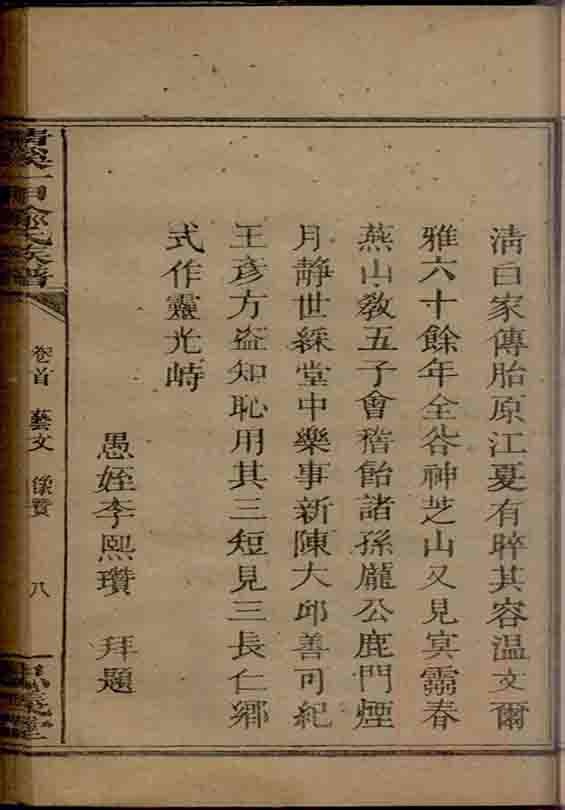 清白家傳胎原江夏有睟其容温文爾
雅六十餘年全谷神芝山又見寅霜春
燕山教五子會稽飴諸孫龐公鹿門煙
月静世綵堂中樂事新陳大邱善可紀
王彥方盗知恥用其三短見三長仁郷
式作靈光峙
愚姪李熙瓚　拜題
一甲
氏族譜
卷首　藝文　像贊　八